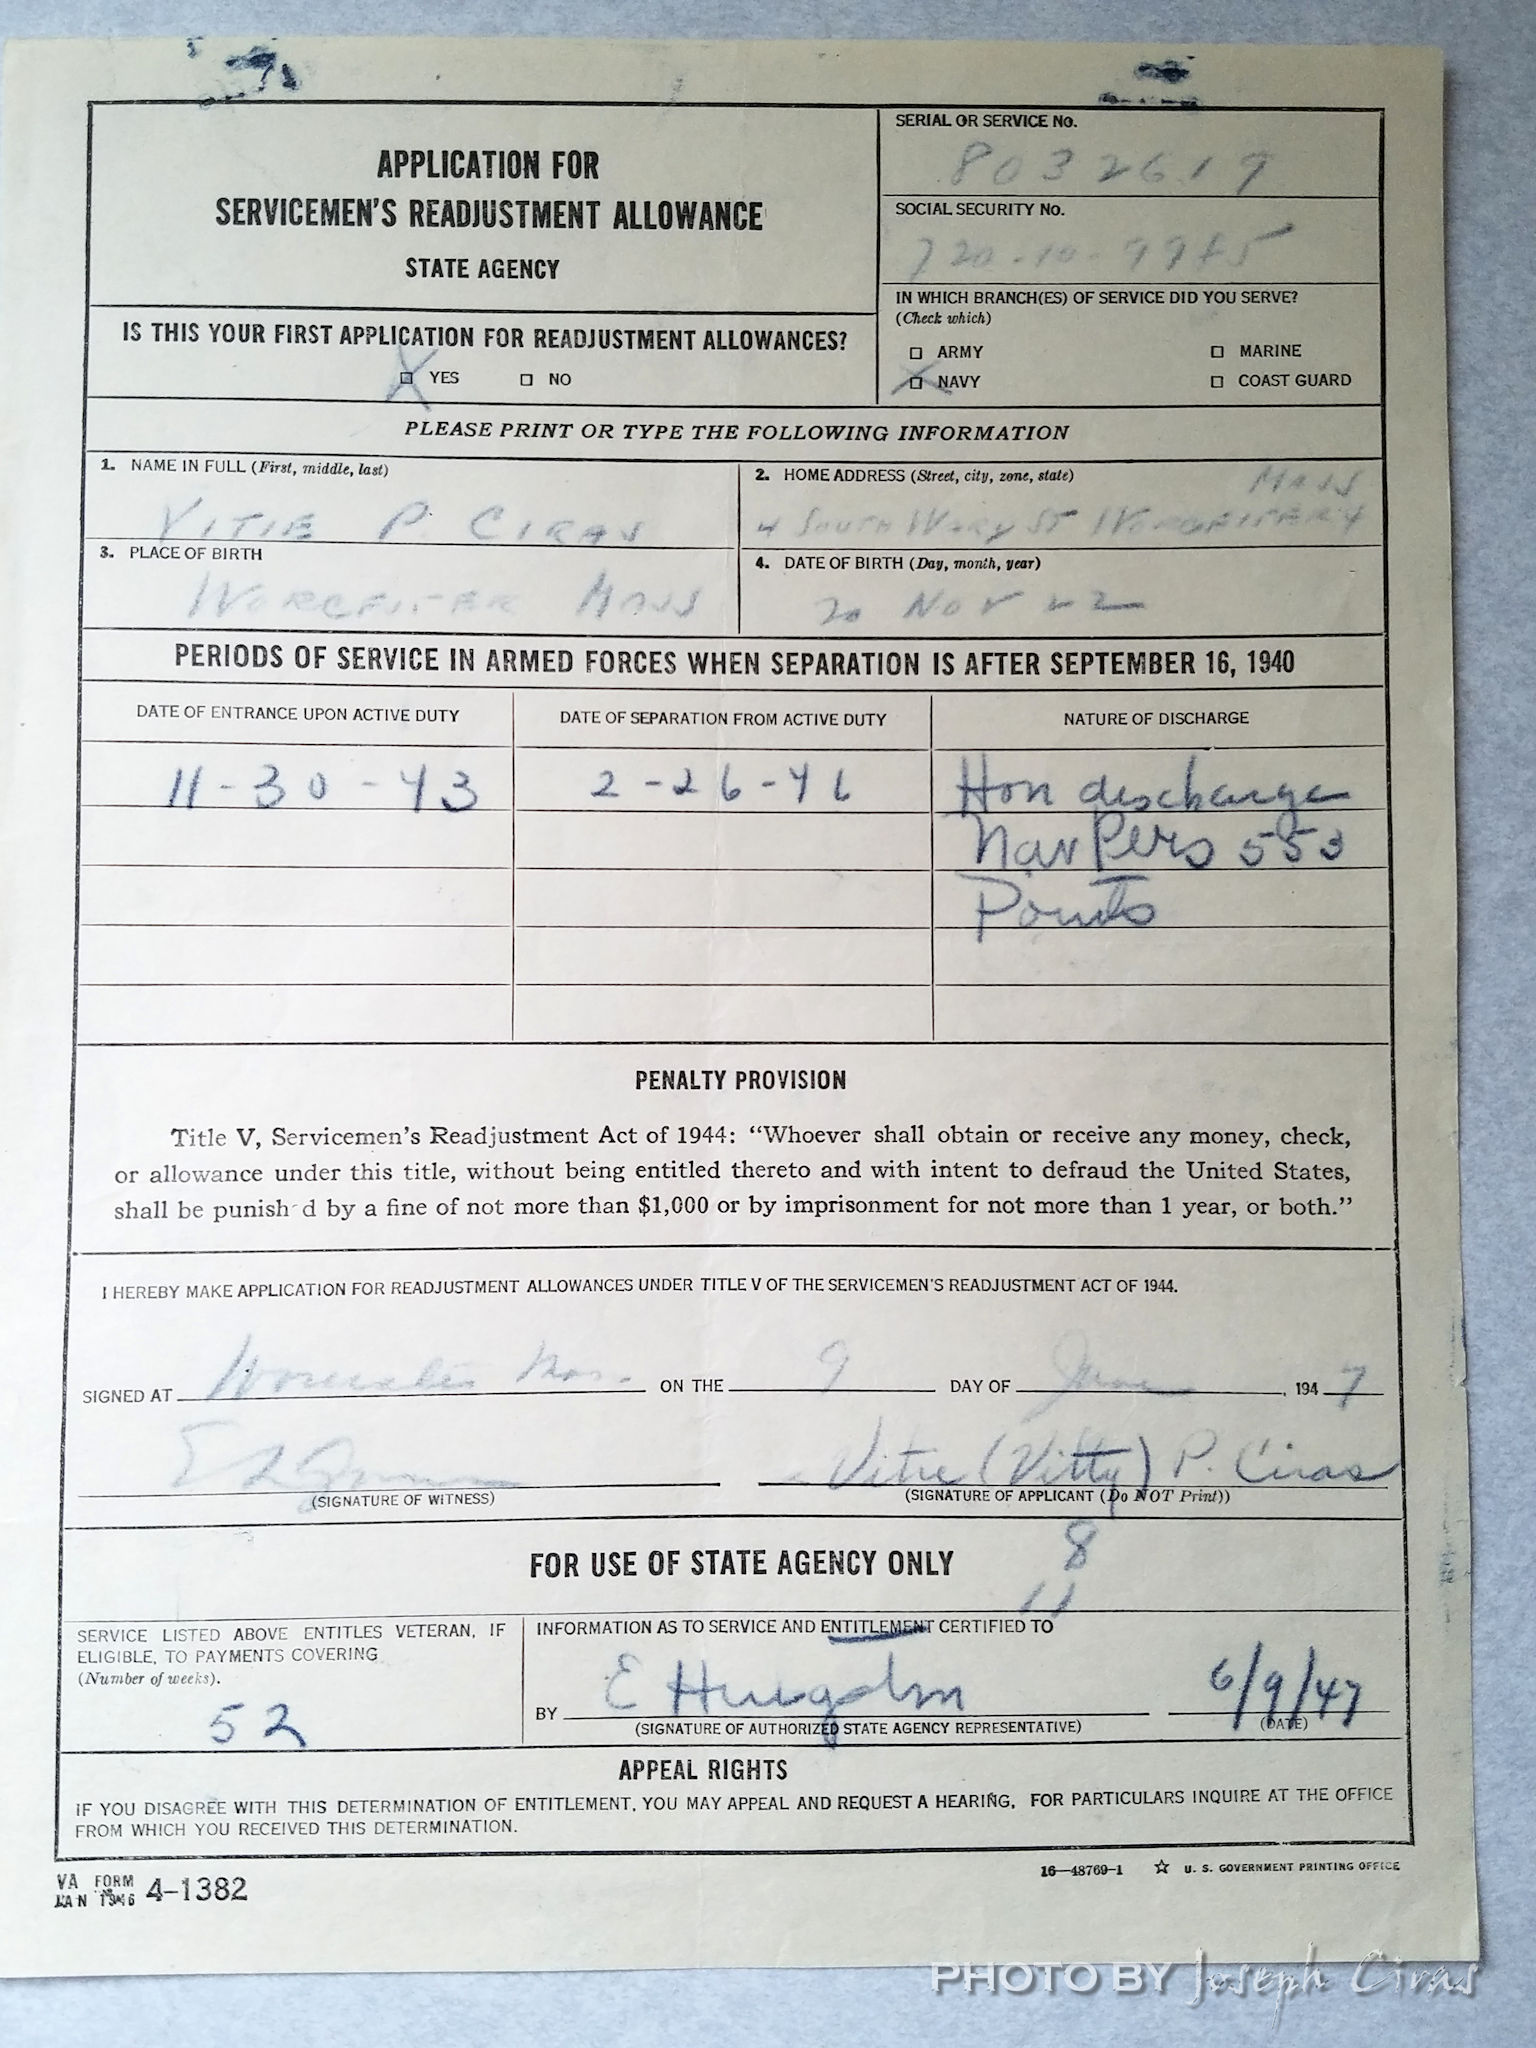 APPLICATION FOR
SERVICEMEN'S READJUSTMENT ALLOWANCE
STATE AGENCY
SERIAL OR SERVICE No.
8032619
SOCIAL SECURITY No.
720-10-
IN WHICH BRANCH(ES) OF SERVICE DID YOU SERVE?
(Check which)
ARMY MARINE
X NAVY COAST GUARD
IS THIS YOUR FIRST APPLICATION FOR READJUSTMENT ALLOWANCES?
X YES NO
PLEASE PRINT OR TYPE THE FOLLOWING INFORMATION
1. NAME IN FULL (First, middle, last)
VITIE P. CIRAS
2. HOME ADDRESS (Street, city, zone, state)
MASS
4 SOUTH ST WORCESTER 4
3. PLACE OF BIRTH
WORCESTER MASS
4. DATE OF BIRTH (Day, month, year)
20 NOV 22
PERIODS OF SERVICE IN ARMED FORCES WHEN SEPARATION IS AFTER SEPTEMBER 16, 1940
DATE OF ENTRANCE UPON ACTIVE DUTY DATE OF SEPARATION FROM ACTIVE DUTY NATURE OF DISCHARGE
11-30-43 2-26-46 Hon discharge
NavPers 553
Points
PENALTY PROVISION
Title V, Servicemen's Readjustment Act of 1944: "Whoever shall obtain or receive any money, check,
or allowance under this title, without being entitled thereto and with intent to defraud the United States,
shall be punish d by a fine of not more than $1,000 or by imprisonment for not more than 1 year, or both."
I HEREBY MAKE APPLICATION FOR READJUSTMENT ALLOWANCES UNDER TITLE V OF THE SERVICEMEN'S READJUSTMENT ACT OF 1944.
SIGNED AT Worcester Mass. ON THE 9 DAY OF June, 1947
Vitie (Vitty) P. Ciras
(SIGNATURE OF WITNESS) (SIGNATURE OF APPLICANT (Do NOT Print))
8
FOR USE OF STATE AGENCY ONLY
11
SERVICE LISTED ABOVE ENTITLES VETERAN, IF
ELIGIBLE, TO PAYMENTS COVERING
(Number of weeks).
52
INFORMATION AS TO SERVICE AND ENTITLEMENT CERTIFIED TO
BY E 6/9/47
(SIGNATURE OF AUTHORIZED STATE AGENCY REPRESENTATIVE) (DATE)
APPEAL RIGHTS
IF YOU DISAGREE WITH THIS DETERMINATION OF ENTITLEMENT, YOU MAY APPEAL AND REQUEST A HEARING. FOR PARTICULARS INQUIRE AT THE OFFICE
FROM WHICH YOU RECEIVED THIS DETERMINATION.
VA FORM
JAN 1946 4-1382
16—48769-1 ☆ U. S. GOVERNMENT PRINTING OFFICE
PHOTO BY Joseph Ciras